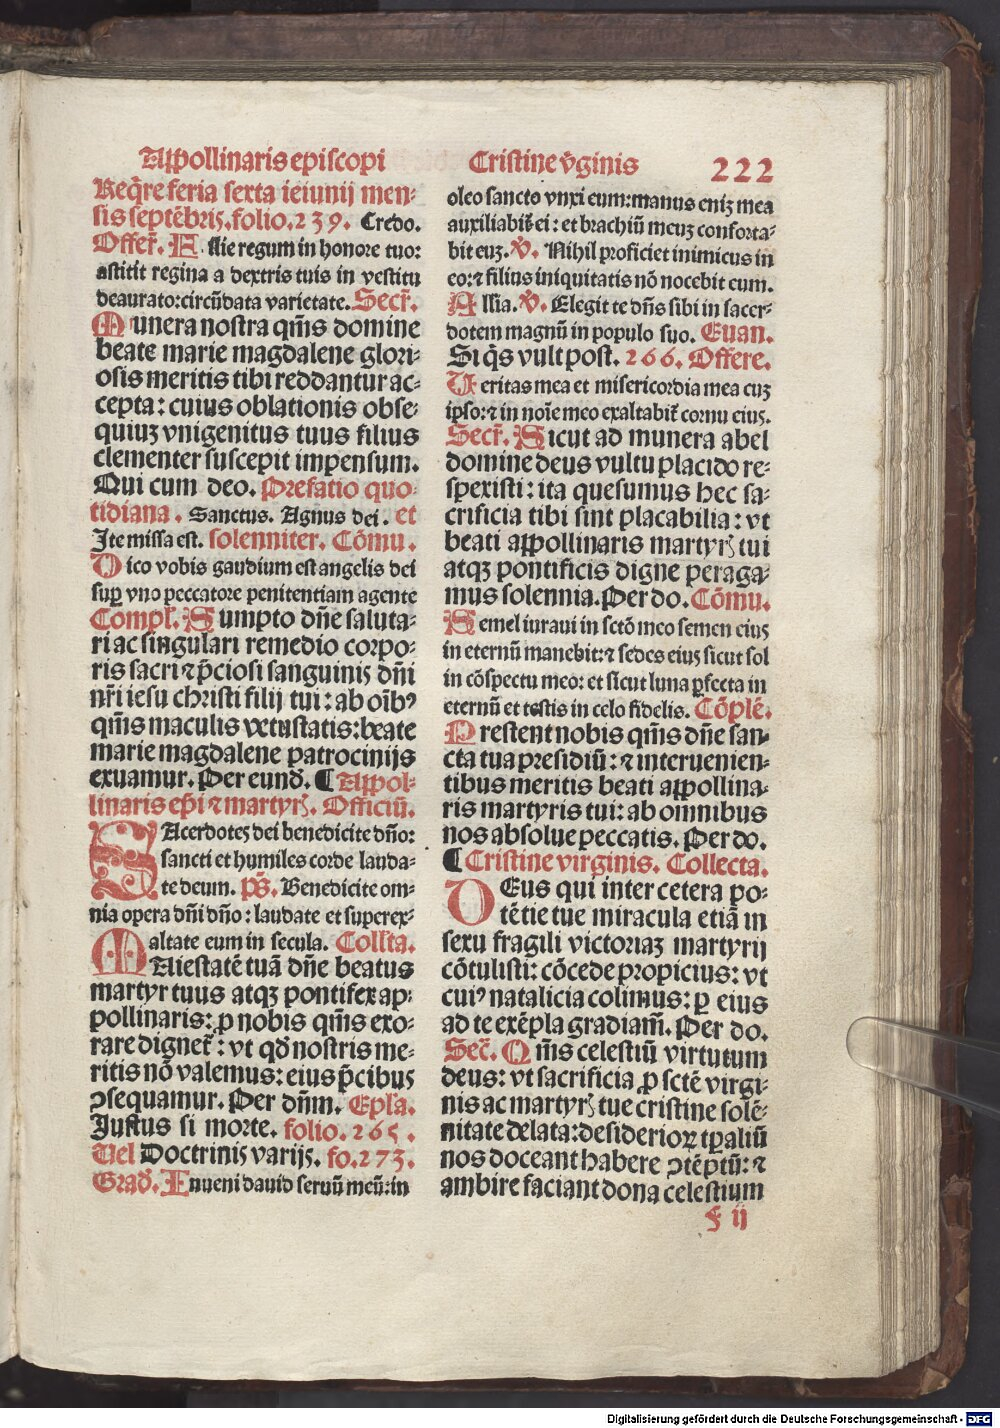 Appollinaris episcopi
Cristine v̄ginis
222
Req̄re feria sexta ieiunij men⸗
sis septēbris. folio. 239. Credo.
Offer̄. Filie regum in honore tuo:
astitit regina a dextris tuis in vestitu
deaurato: circūdata varietate. Secr̄.
Munera nostra qm̄s domine
beate marie magdalene glori⸗
osis meritis tibi reddantur ac⸗
cepta: cuius oblationis obse⸗
quiuꝫ vnigenitus tuus filius
clementer suscepit impensum.
Qui cum deo. Prefatio quo⸗
tidiana. Sanctus. Agnus dei. et
Ite missa est. solenniter. Cōmu.
Dico vobis gaudium est angelis dei
suꝑ vno peccatore penitentiam agente
Compl̄. Sumpto dn̄e saluta⸗
ri ac singulari remedio corpo⸗
ris sacri ⁊ p̄ciosi sanguinis dn̄i
nr̄i iesu christi filij tui: ab oībꝰ
qm̄s maculis vetustatis: beate
marie magdalene patrocinijs
exuamur. Per eund̄. ¶ Appol⸗
linaris ep̄i ⁊ martyrꝭ. Officiū.
SAcerdotes dei benedicite dn̄o:
sancti et humiles corde lauda⸗
te deum. p̄s. Benedicite om⸗
nia opera dn̄i dn̄o: laudate et superex⸗
altate eum in secula. Coll̄ta.
MAiestatē tuā dn̄e beatus
martyr tuus atqꝫ pontifex ap⸗
pollinaris: ꝓ nobis qm̄s exo⸗
rare dignet̄: vt qd̄ nostris me⸗
ritis nō valemus: eius p̄cibus
ꝯsequamur. Per dn̄m. Epl̄a.
Justus si morte. folio. 265.
Vel Doctrinis varijs. fo. 273.
Grad̄. Inueni dauid seruū meū: in
oleo sancto vnxi eum: manus eniꝫ mea
auxiliabit̄ ei: et brachiū meuꝫ conforta⸗
bit euꝫ. V̄. Nihil proficiet inimicus in
eo: ⁊ filius iniquitatis nō nocebit eum.
Allīa. V̄. Elegit te dn̄s sibi in sacer⸗
dotem magnū in populo suo. Euan.
Si q̄s vult post. 266. Offere.
Veritas mea et misericordia mea cuꝫ
ipso: ⁊ in noīe meo exaltabit̄ cornu eius.
Secr̄. Sicut ad munera abel
domine deus vultu placido re⸗
spexisti: ita quesumus hec sa⸗
crificia tibi sint placabilia: vt
beati appollinaris martyrꝭ tui
atqꝫ pontificis digne peraga⸗
mus solennia. Per do. Cōmu.
Semel iuraui in sctō meo semen eius
in eternū manebit: ⁊ sedes eius sicut sol
in cōspectu meo: et sicut luna ꝑfecta in
eternū et testis in celo fidelis. Cōplē.
Prestent nobis qm̄s dn̄e san⸗
cta tua presidiū: ⁊ interuenien⸗
tibus meritis beati appollina⸗
ris martyris tui: ab omnibus
nos absolue peccatis. Per do.
¶ Cristine virginis. Collecta.
DEus qui inter cetera po⸗
tētie tue miracula etiā in
sexu fragili victoriaꝫ martyrij
cōtulisti: cōcede propicius: vt
cuiꝰ natalicia colimus: ꝑ eius
ad te exēpla gradiam̄. Per do.
Sec̄. Qm̄s celestiū virtutum
deus: vt sacrificia ꝓ sctē virgi⸗
nis ac martyrꝭ tue cristine solē⸗
nitate delata: desideriorꝝ tꝑaliū
nos doceant habere ꝯtēptū: ⁊
ambire faciant dona celestium
f ij
Digitalisierung gefördert durch die Deutsche Forschungsgemeinschaft - DFG